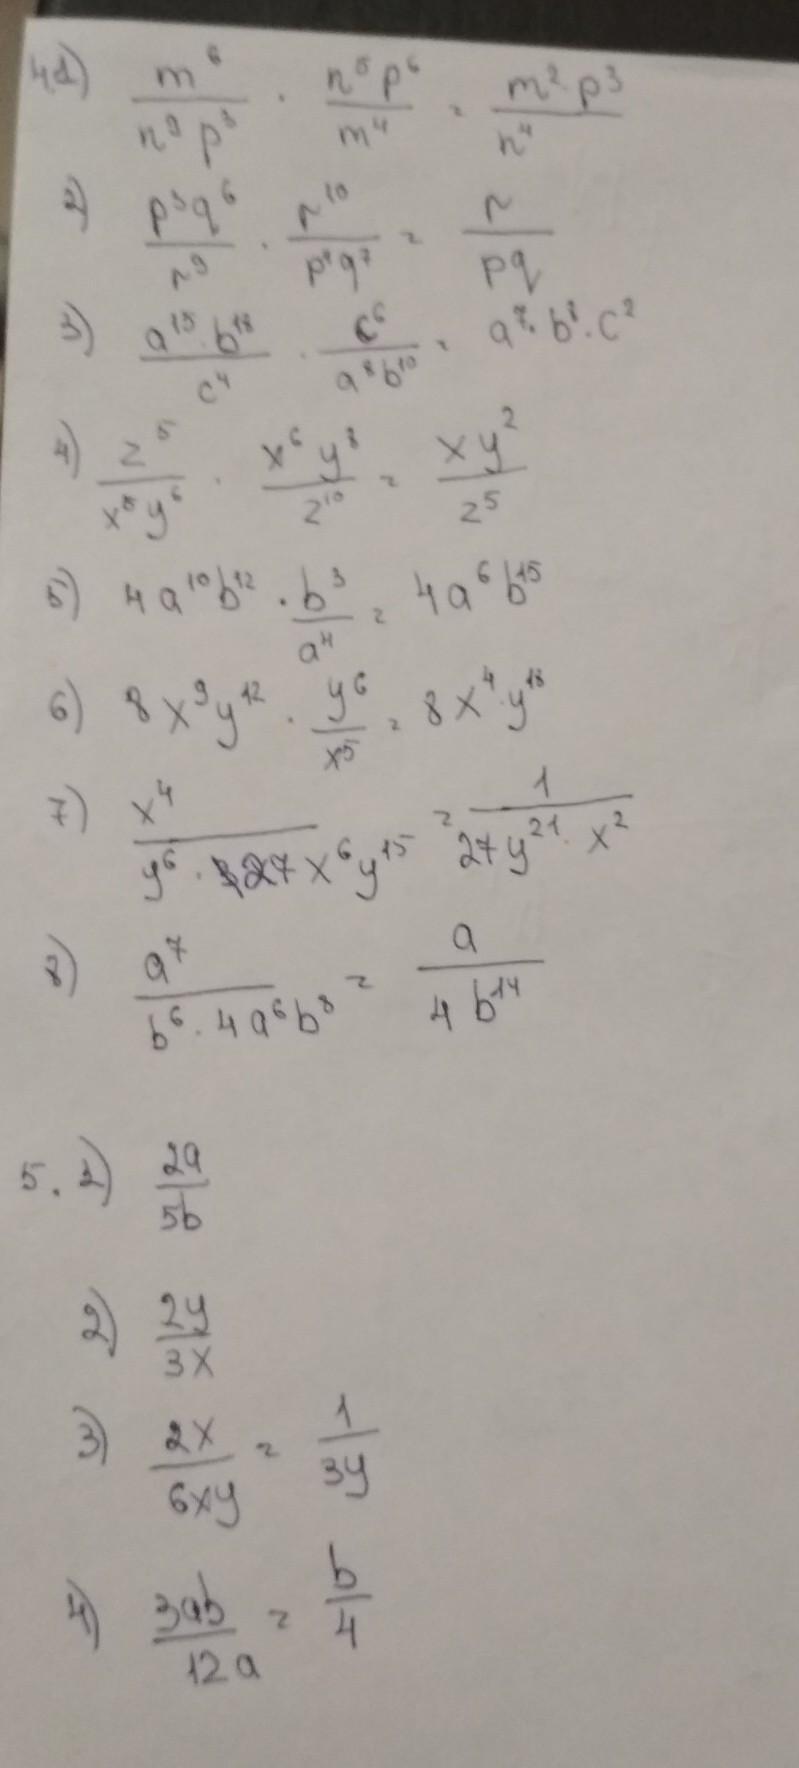 4.1) m⁶/(n⁹p³) · n⁵p⁶/m⁴ = m²·p³/n⁴
2) p³q⁶/r⁹ · r¹⁰/(p⁴q⁷) = r/(pq)
3) a¹⁵·b¹⁸/c⁴ · c⁶/(a⁸b¹⁰) = a⁷·b⁸·c²
4) z⁵/(x⁵y⁶) · x⁶y⁸/z¹⁰ = xy²/z⁵
5) 4a¹⁰b¹² · b³/a⁴ = 4a⁶b¹⁵
6) 8x⁹y¹² · y⁶/x⁵ = 8x⁴·y¹⁸
7) x⁴/(y⁶·27x⁶y¹⁵) = 1/(27y²¹·x²)
8) a⁷/(b⁶·4a⁶b⁸) = a/(4b¹⁴)
5. 1) 2a/5b
2) 2y/3x
3) 2x/6xy = 1/3y
4) 3ab/12a = b/4